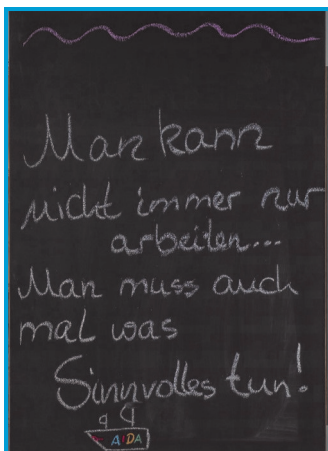 Man kann
nicht immer nur
arbeiten...
Man muss auch
mal was
Sinnvolles tun!
AIDA